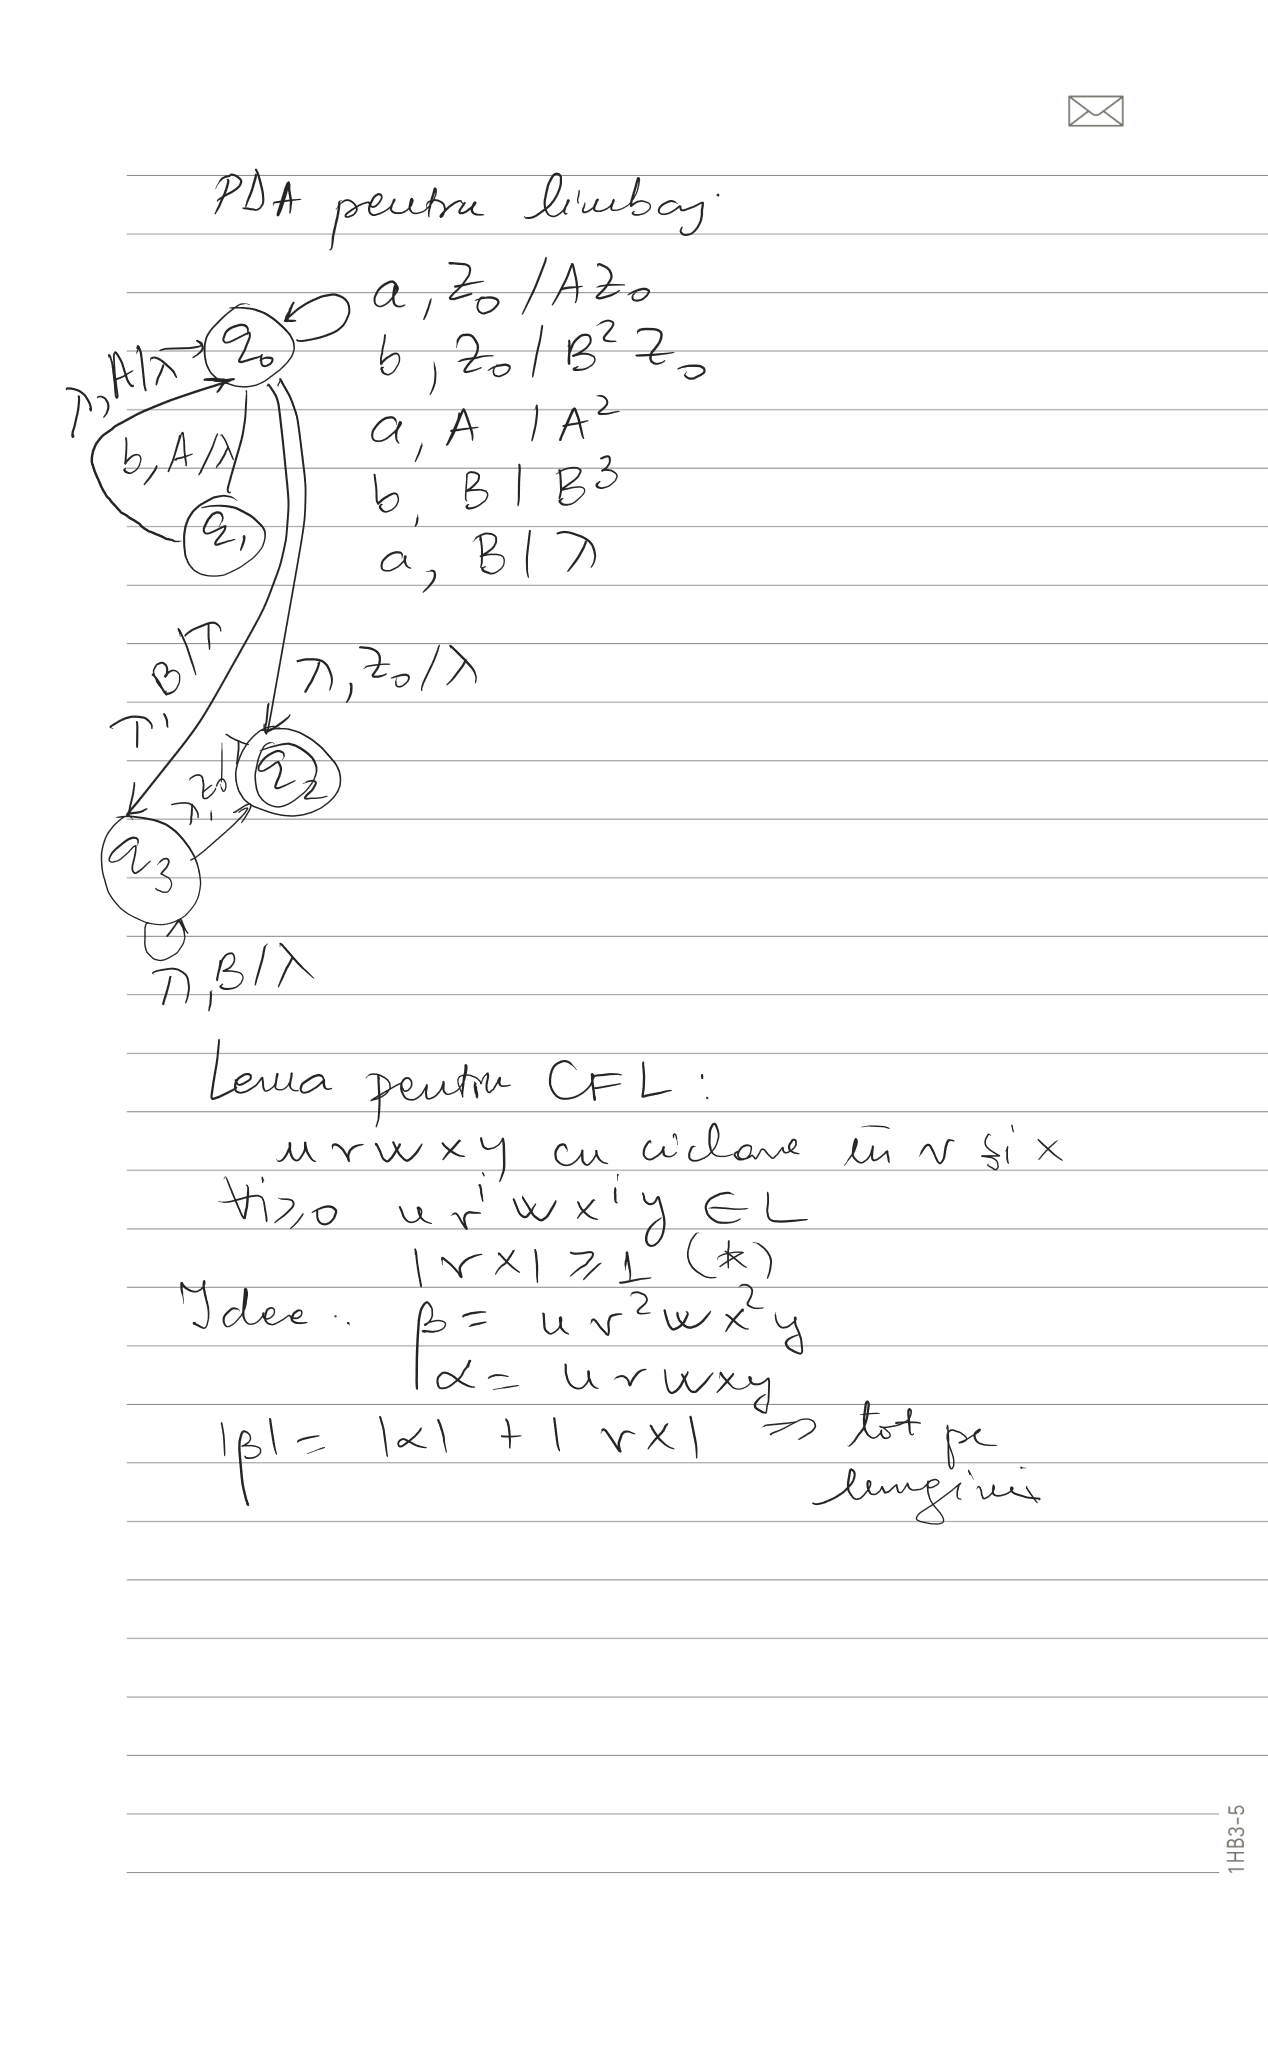 PDA pentru limbaj.
a, Z₀ / AZ₀
q₀
b, Z₀ / B² Z₀
λ, A/λ
a, A / A²
b, A/λ
b, B / B³
q₁
a, B / λ
λ, B/λ
λ, Z₀/λ
λ, Z₀/λ
q₂
q₃
λ, B/λ
Lema pentru CFL :
u v w x y cu ciclare în v și x
∀i≥0 u vⁱ w xⁱ y ∈ L
|vx| ≥ 1 (*)
Idee : β = u v² w x² y
α = u v w x y
|β| = |α| + |vx| => tot pe
lungimi
1HB3-5